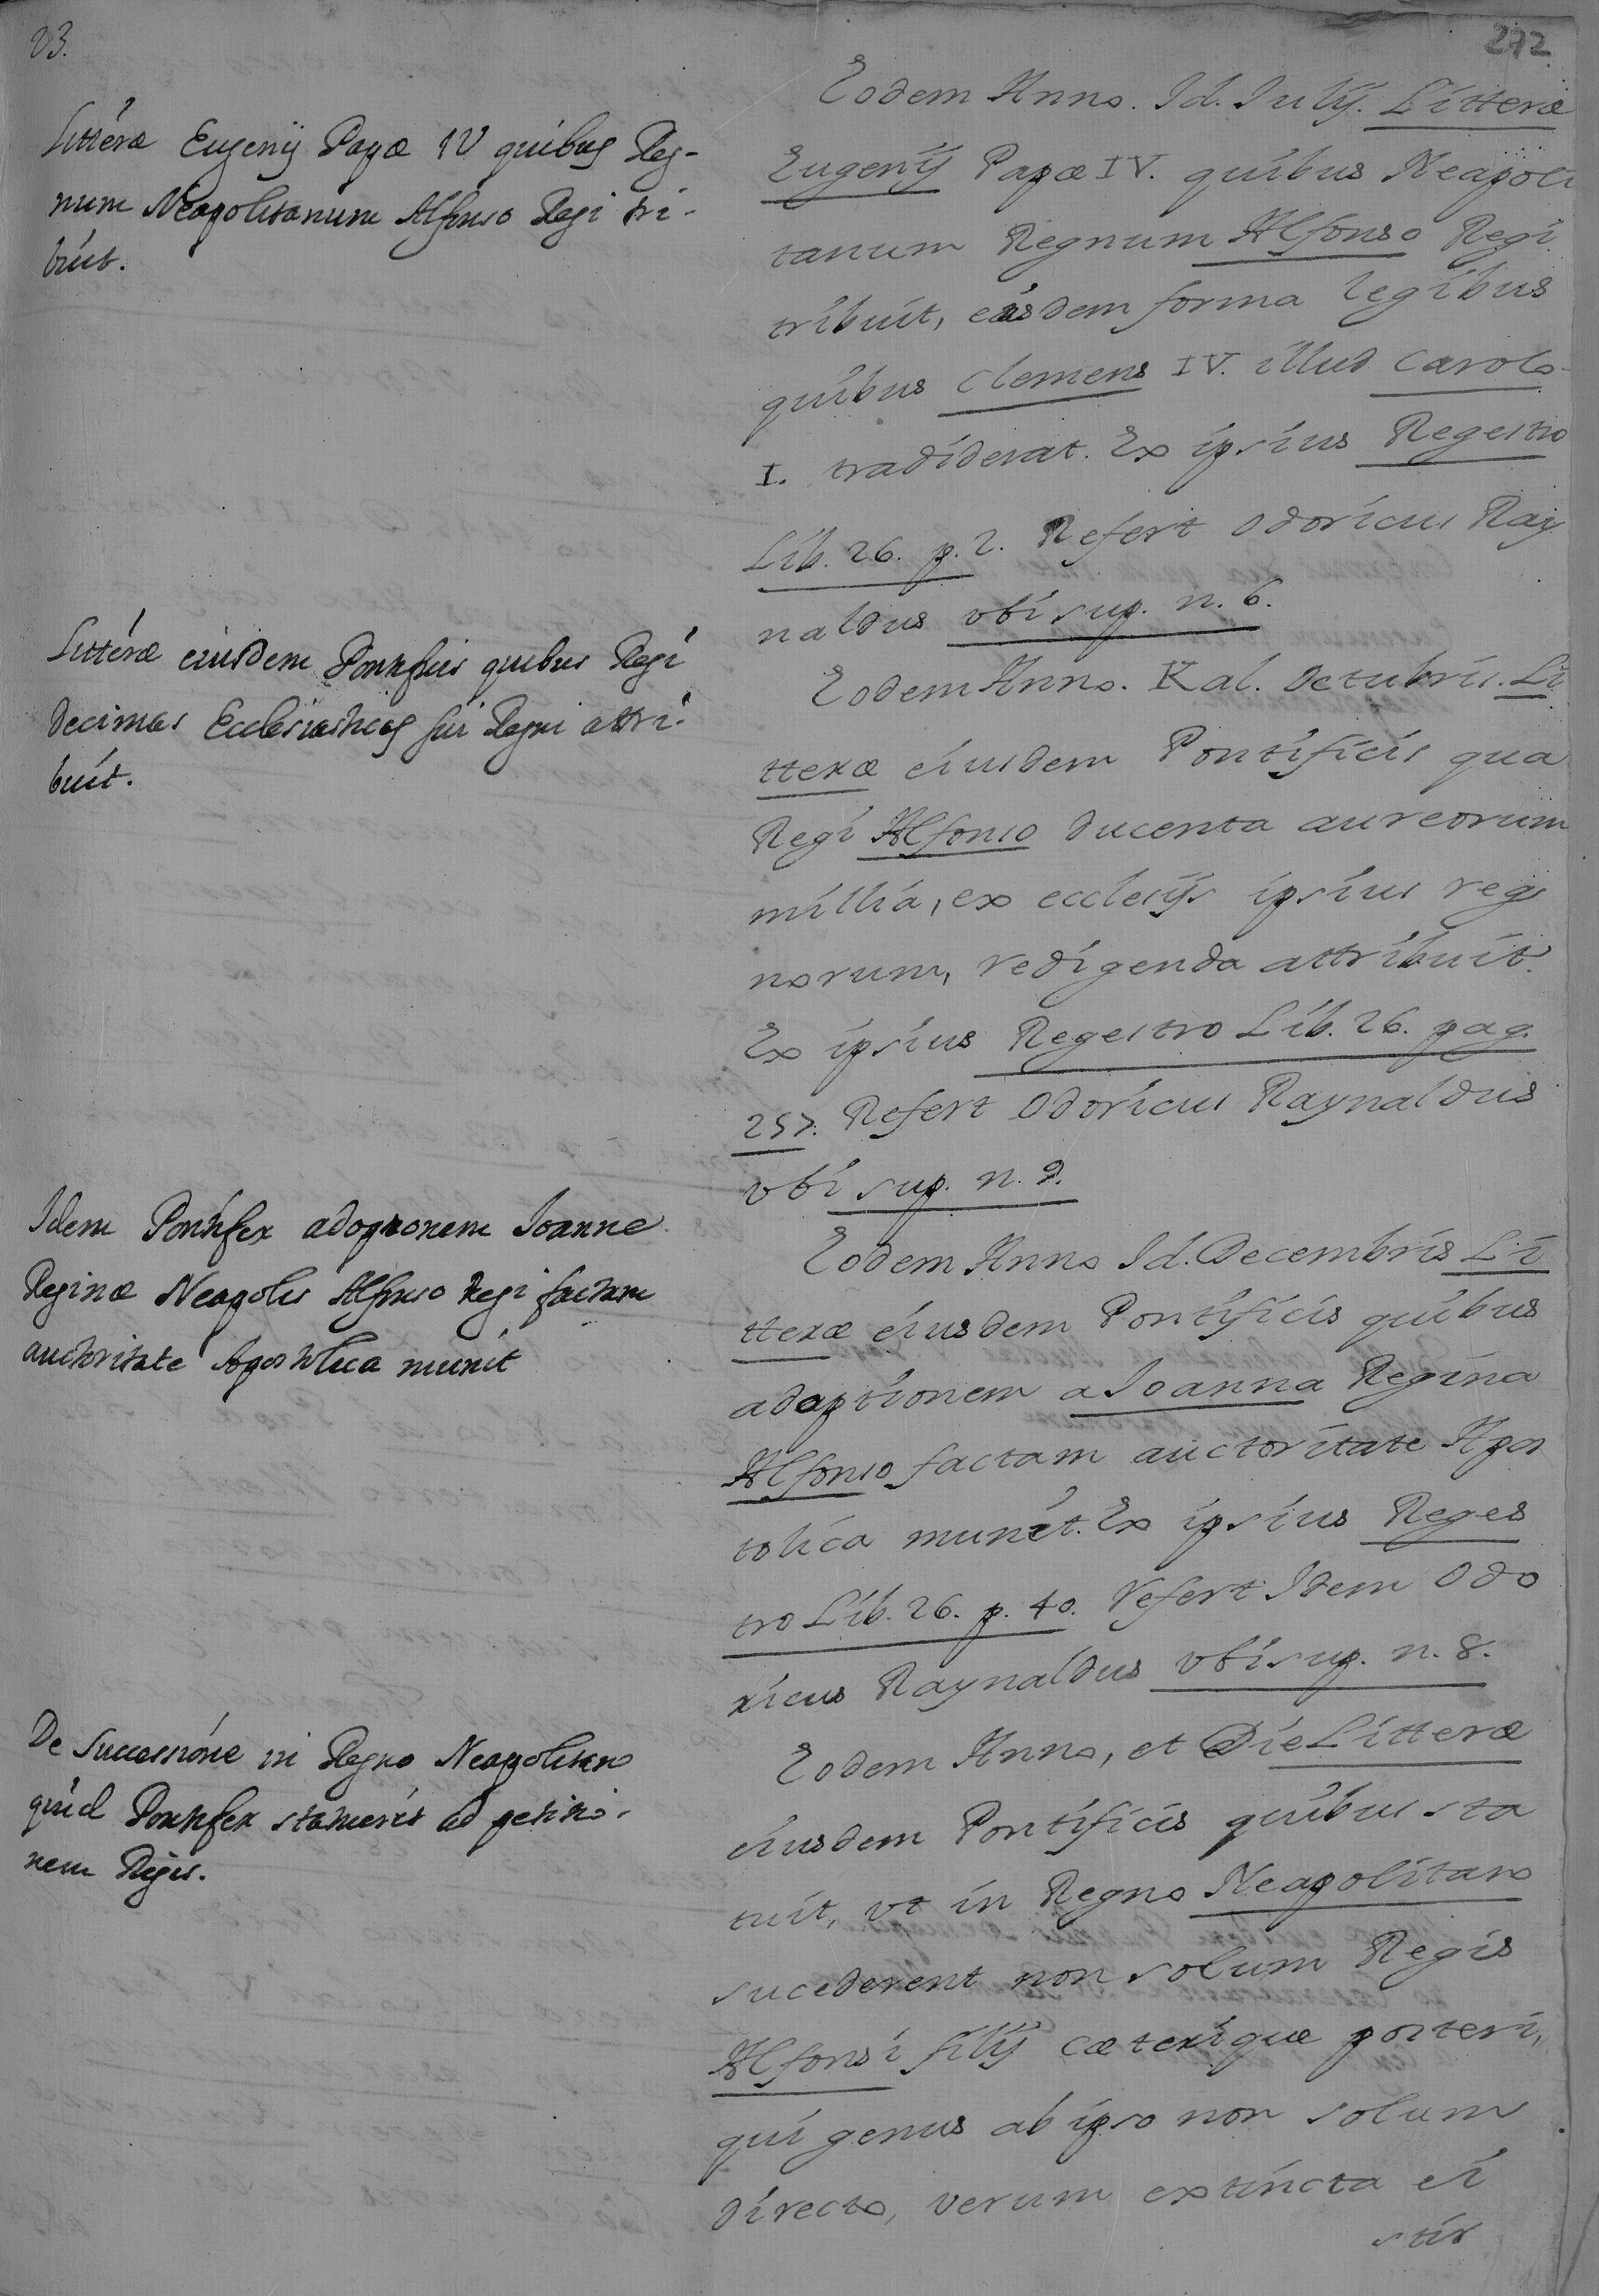 83.
272
Litteræ Eugenij Papæ IV quibus Reg-
num Neapolitanum Alfonso Regi tri-
buit.
Eodem Anno. Id. Iulij. Litteræ
Eugenij Papæ IV. quibus Neapoli
tanum Regnum Alfonso Regi
tribuit, eisdem forma legibus
quibus Clemens IV. illud Carolo
I. tradiderat. Ex ipsius Regestro
Lib. 26. p. 2. Refert Odoricus Ray
naldus vbi sup. n. 6.
Litteræ eiusdem Pontificis quibus Regi
decimas Ecclesiasticas sui Regni attri-
buit.
Eodem Anno. Kal. Octubris. Li
tteræ eiusdem Pontificis qua
Regi Alfonso ducenta aureorum
millia, ex eccleijs ipsius reg
norum, redigenda attribuit.
Ex ipsius Regestro Lib. 26. pag.
257. Refert Odoricus Raynaldus
vbi sup. n. 9.
Idem Pontifex adoptionem Ioannæ
Reginæ Neapolis Alfonso Regi factam
auctoritate Apostolica munit
Eodem Anno Id. Decembris Li
tteræ eiusdem Pontificis quibus
adoptionem a Ioanna Regina
Alfonso factam auctoritate Apos
tolica munit. Ex ipsius Reges
tro Lib. 26. p. 40. refert Idem Odo
ricus Raynaldus vbi sup. n. 8.
De successione in Regno Neapolitano
quid Pontifex statuerit ad petitio-
nem Regis.
Eodem Anno, et Die Litteræ
eiusdem Pontificis quibus sta
tuit, vt in Regno Neapolitano
sucederent non solum Regis
Alfonsi filij cæterique posteri,
qui genus ab ipso non solum
directo, verum extincta ei
stir